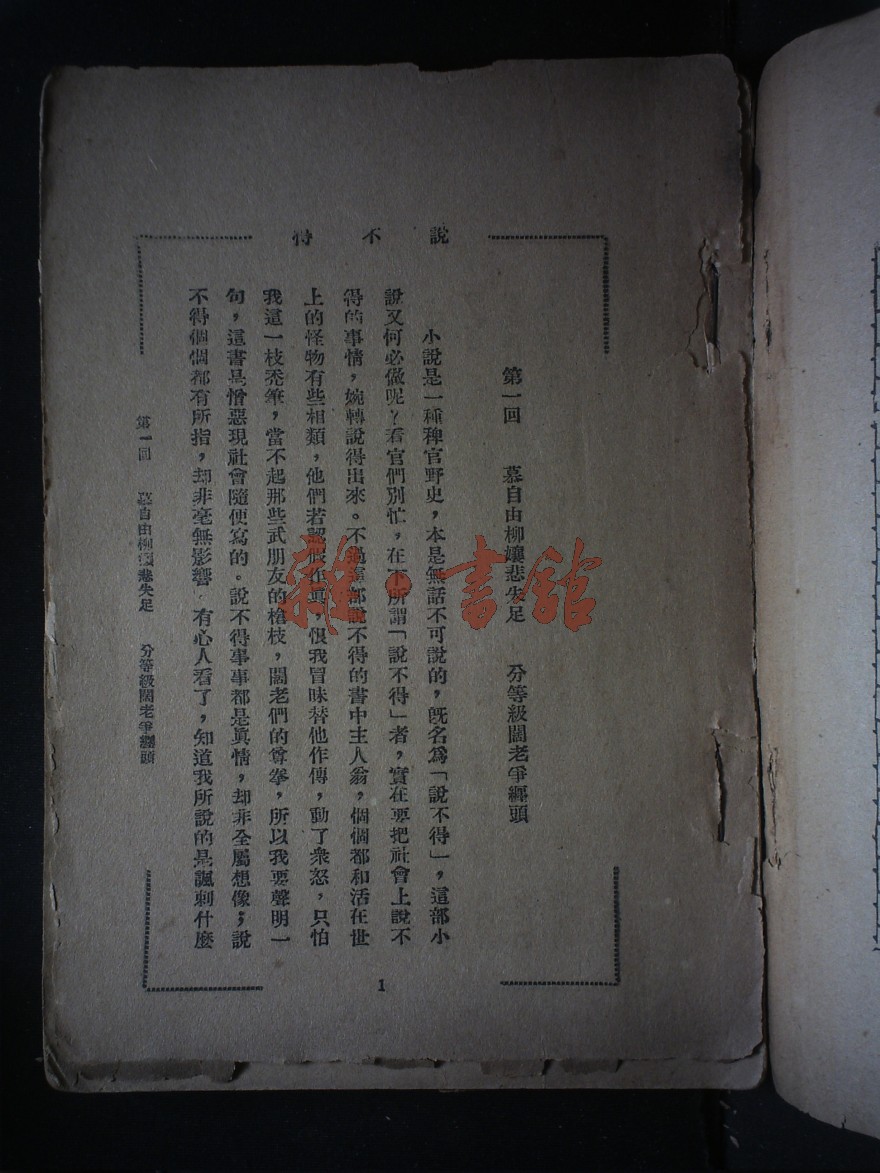 說不得
第一回 慕自由柳孃悲失足 分等級闊老爭纏頭
小說是一種稗官野史，本是無話不可說的，旣名爲「說不得」，這部小
說又何必做呢？看官們別忙，在下所謂「說不得」者，實在要把社會上說不
得的事情，婉轉說得出來。不過這部說不得的書中主人翁，個個都和活在世
上的怪物有些相類，他們若認假作眞，恨我冒昧替他作傳，動了衆怒，只怕
我這一枝禿筆，當不起那些武朋友的槍枝，闊老們的尊拳，所以我要聲明一
句，這書是憎惡現社會隨便寫的。說不得事事都是眞情，却非全屬想像；說
不得個個都有所指，却非毫無影響。有心人看了，知道我所說的是諷刺什麼
第一回 慕自由柳孃悲失足 分等級闊老爭纏頭
1
雜·書館